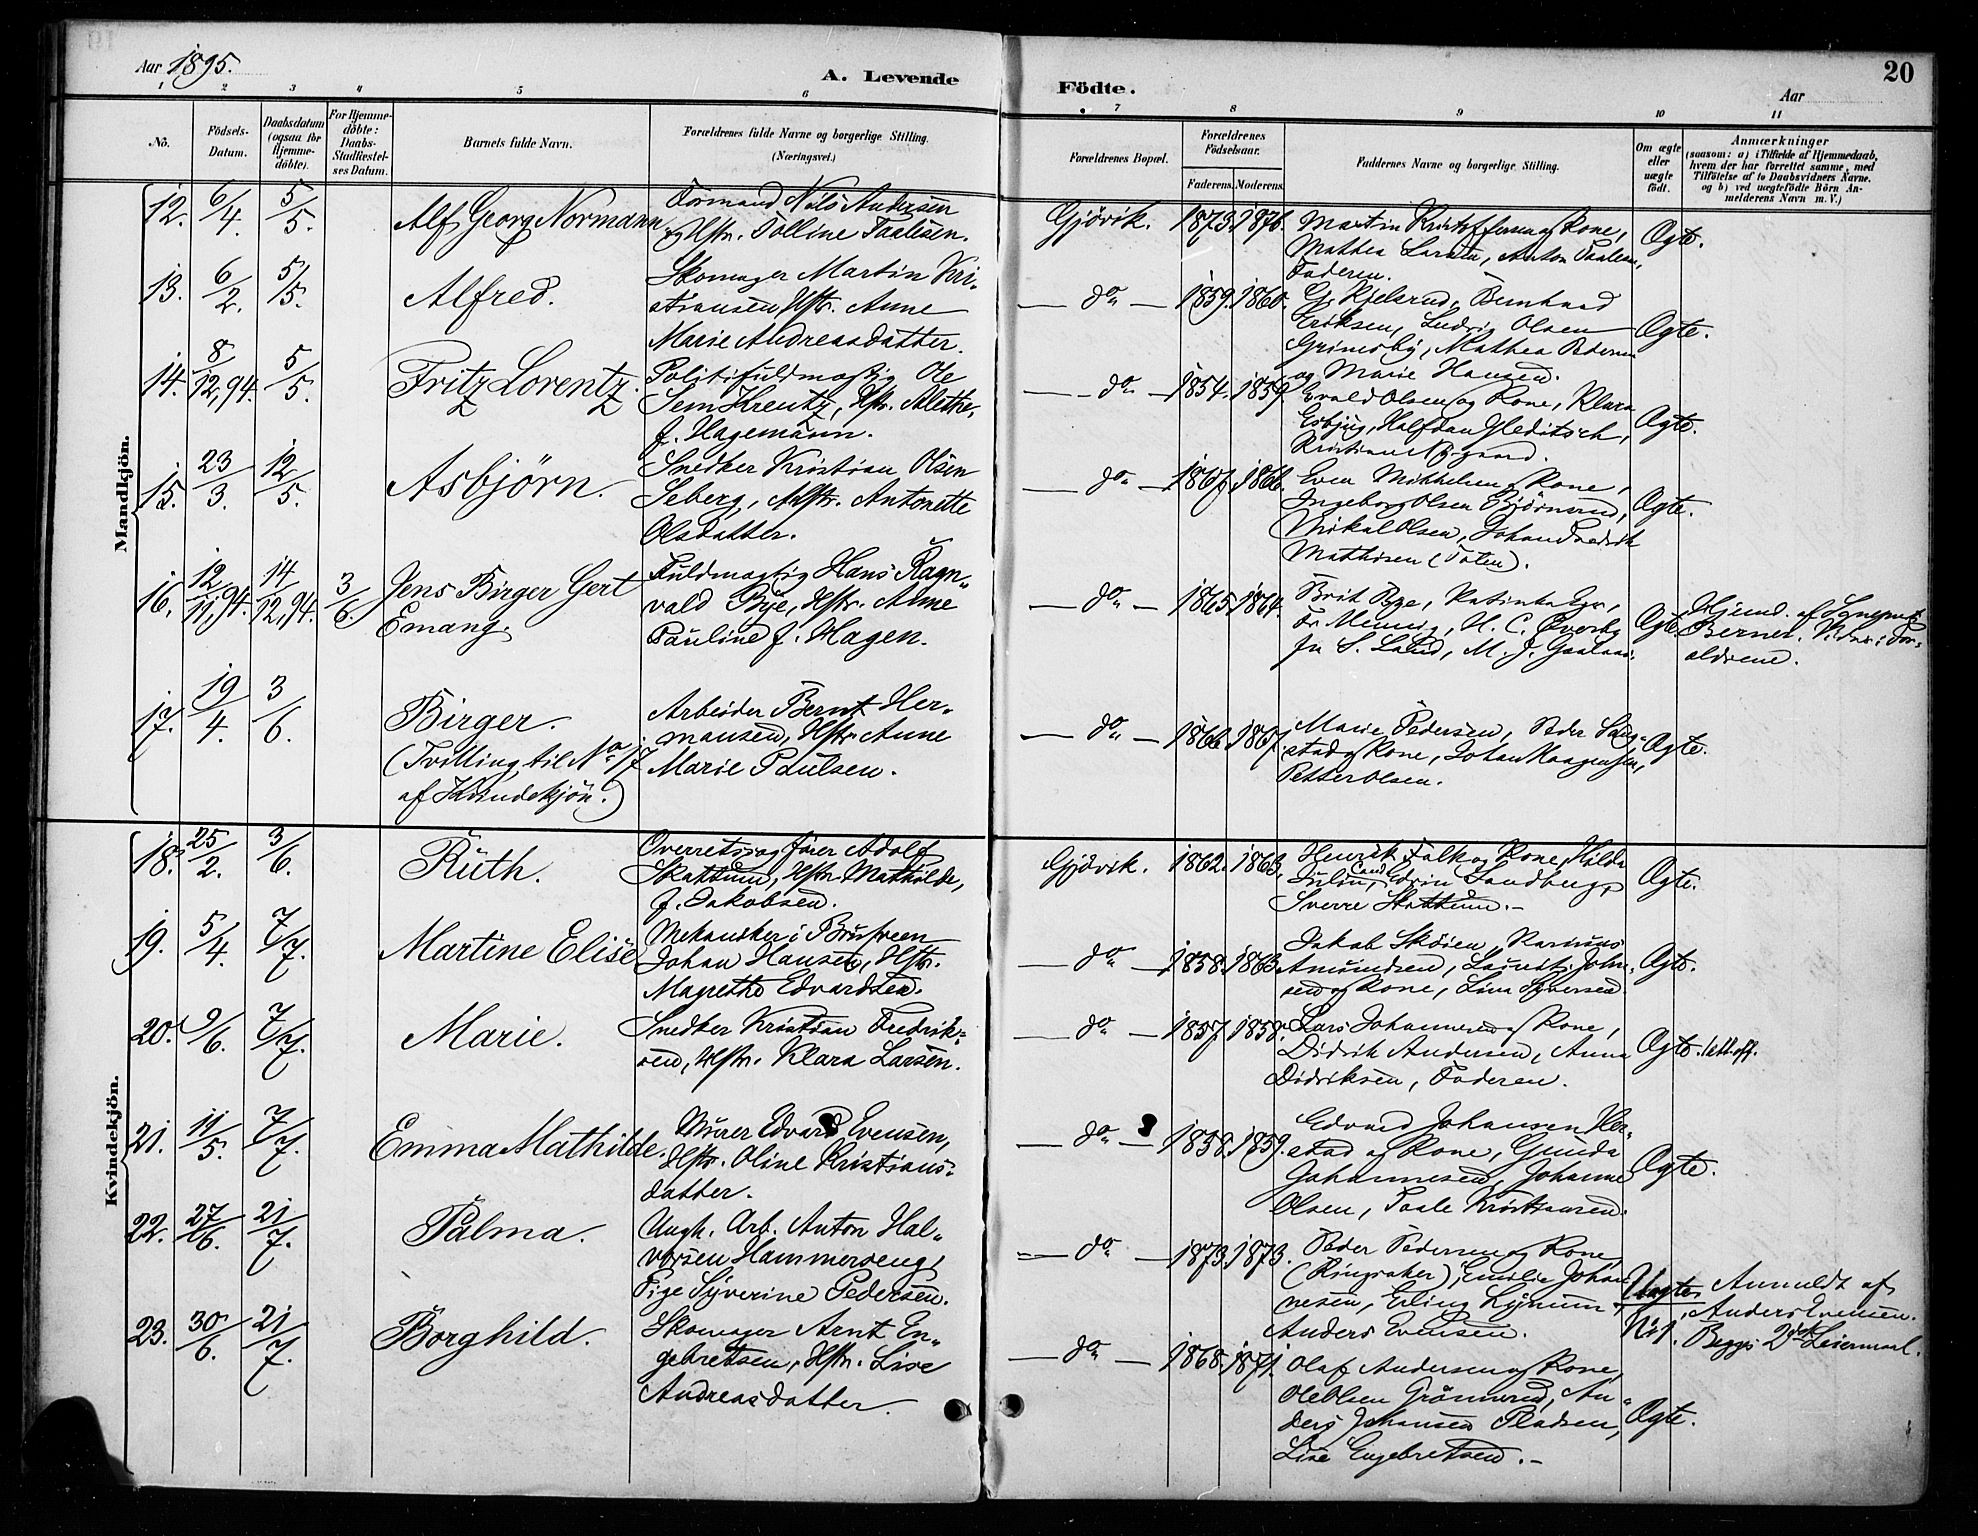 Aar 1895.
A. Levende
Födte.
Aar
20
1 2 3 4 5 6 7 8 9 10 11
No.
Födsels-
Datum.
Daabsdatum
(ogsaa for
Hjemme-
döbte).
For Hjemme-
döbte:
Daabs-
Stadfæstel-
ses Datum.
Barnets fulde Navn.
Forældrenes fulde Navne og borgerlige Stilling.
(Næringsvei.)
Forældrenes Bopæl.
Forældrenes
Födselsaar.
Faderens. Moderens.
Faddernes Navne og borgerlige Stilling.
Om ægte
eller
uægte
födt.
Anmærkninger
(saasom: a) i Tilfælde af Hjemmedaab,
hvem der har forrettet samme, med
Tilföielse af to Daabsvidners Navne.
og b) ved uægtefödte Börn An-
melderens Navn m. V.)
Mandkjön.
12. 6/4. 5/5. Alf Georg Normann
Formand Nils Andersen
og Hstr. Tolline Paulsen.
Gjövik. 1873. 1876.
Martin Kristoffersen og Kone,
Mathea Larsen, Anton Paulsen,
Faderen.
Ægte.
13. 6/2. 5/5. Alfred.
Skomager Martin Kri-
stiansen, Hstr. Anne
Marie Andreasdatter.
do 1859. 1860.
G. Kjelsrud, Bernhard
Eriksen, Ludvig Olsen
Grimsby, Mathea Pedersen
og Marie Hansen.
Ægte.
14. 8/12,94. 5/5. Fritz Lorentz.
Politifuldmægtig Ole
Sem Krentz, Hstr. Alethe,
f. Hagemann.
do 1854. 1859.
Evald Olsen og Kone, Klara
Esbjug, Halfdan Gleditsch,
Ægte.
15. 23/3. 12/5. Asbjörn.
Snedker Kristian Olsen
Seberg, Hstr. Antonette
Olsdatter.
do 1867. 1866.
Even Mikkelsen, Kone,
Ingeborg Olsen Björnerud,
Mikal Olsen, Johan Fredrik
Mathisen (Toten).
Ægte.
16. 12/11,94. 14/12,94. 3/6. Jens Birger Gert
Emang.
Fuldmægtig Hans Ragn-
vald Bye, Hstr. Anne
Pauline f. Hagen.
do 1865. 1864.
Brit Bye, Katinka
Fr. Mennig, H. C. Överby
S. Lund, M. J.
Ægte.
Hjemd. af Sognepræst
Berner. Vidner: For-
ældrene.
17. 19/4. 3/6. Birger.
(Tvilling til No 17
af Kvindekjön.)
Arbeider Bernt Her-
mansen, Hstr. Anne
Marie Paulsen.
do 1866. 1867.
Marie Pedersen, Peder Saug-
stad og Kone, Johan Haagensen,
Petter Olsen.
Ægte.
Kvindekjön.
18. 25/2. 3/6. Ruth.
Overretssagförer Adolf
Skattum, Hstr. Mathilde,
f. Jakobsen.
Gjövik. 1862. 1863.
Henrik Falk og Kone, Hilda
Julin, Cand. Edvin Sandberg,
Sverre Skattum.
Ægte.
19. 5/4. 7/7. Martine Elise
Mekaniker i Brusveen
Johan Hansen, Hstr.
Magrethe Edvardsen.
do 1858. 1863.
Jakob Sköien, Rasmus
Amundsen, Lauritz John-
sen og Kone, Lina Syversen.
Ægte.
20. 9/6. 7/7. Marie.
Snedker Kristian Fredrik-
sen, Hstr. Klara Larsen.
do 1857. 1858.
Lars Johannesen og Kone,
Didrik Andersen, Anna
Didriksen, Faderen.
Ægte. att. off.
21. 11/5. 7/7. Emma Mathilde.
Murer Edvard Evensen,
Hstr. Oline Kristians-
datter.
do 1858. 1859.
Edvard Johansen Her-
stad og Kone, Gunda
Johannesen, Johanne
Olsen, Paale Kristiansen.
Ægte.
22. 27/6. 21/7. Palma.
Ungk. Arb. Anton Hal-
vorsen Hammerseng,
Pige Syverine Pedersen.
do 1873. 1873.
Peder Pedersen og Kone,
(Ringsaker), Emilie Johan-
nesen, Erling Lynum,
Anders Evensen.
Uægte,
No 1.
Anmeldt af
Anders Evensen.
Begges 2det Leiermaal.
23. 30/6. 21/7. Borghild.
Skomager Arnt En-
gebretsen, Hstr. Lise
Andreasdatter.
do 1868. 1871.
Olaf Andersen og Kone,
Ole Olsen Grönnerud, An-
ders Johansen Pladsen,
Lise Engebretsen.
Ægte.